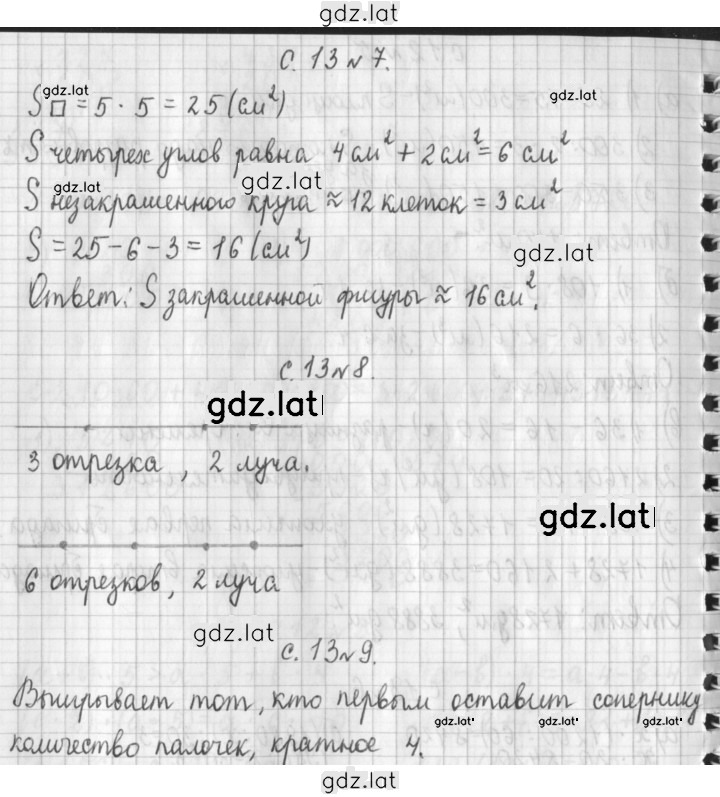 gdz.lat
с. 13 № 7.
gdz.lat
gdz.lat
S □ = 5 · 5 = 25 (см²)
S четырех углов равна 4 см² + 2 см² = 6 см²
gdz.lat
gdz.lat
S незакрашенного круга ≈ 12 клеток = 3 см²
S = 25 − 6 − 3 = 16 (см²)
gdz.lat
Ответ: S закрашенной фигуры ≈ 16 см².
с. 13 № 8.
gdz.lat
3 отрезка, 2 луча.
gdz.lat
6 отрезков, 2 луча
gdz.lat
с. 13 № 9.
Выигрывает тот, кто первым оставит сопернику
gdz.lat
gdz.lat
gdz.lat
количество палочек, кратное 4.
gdz.lat